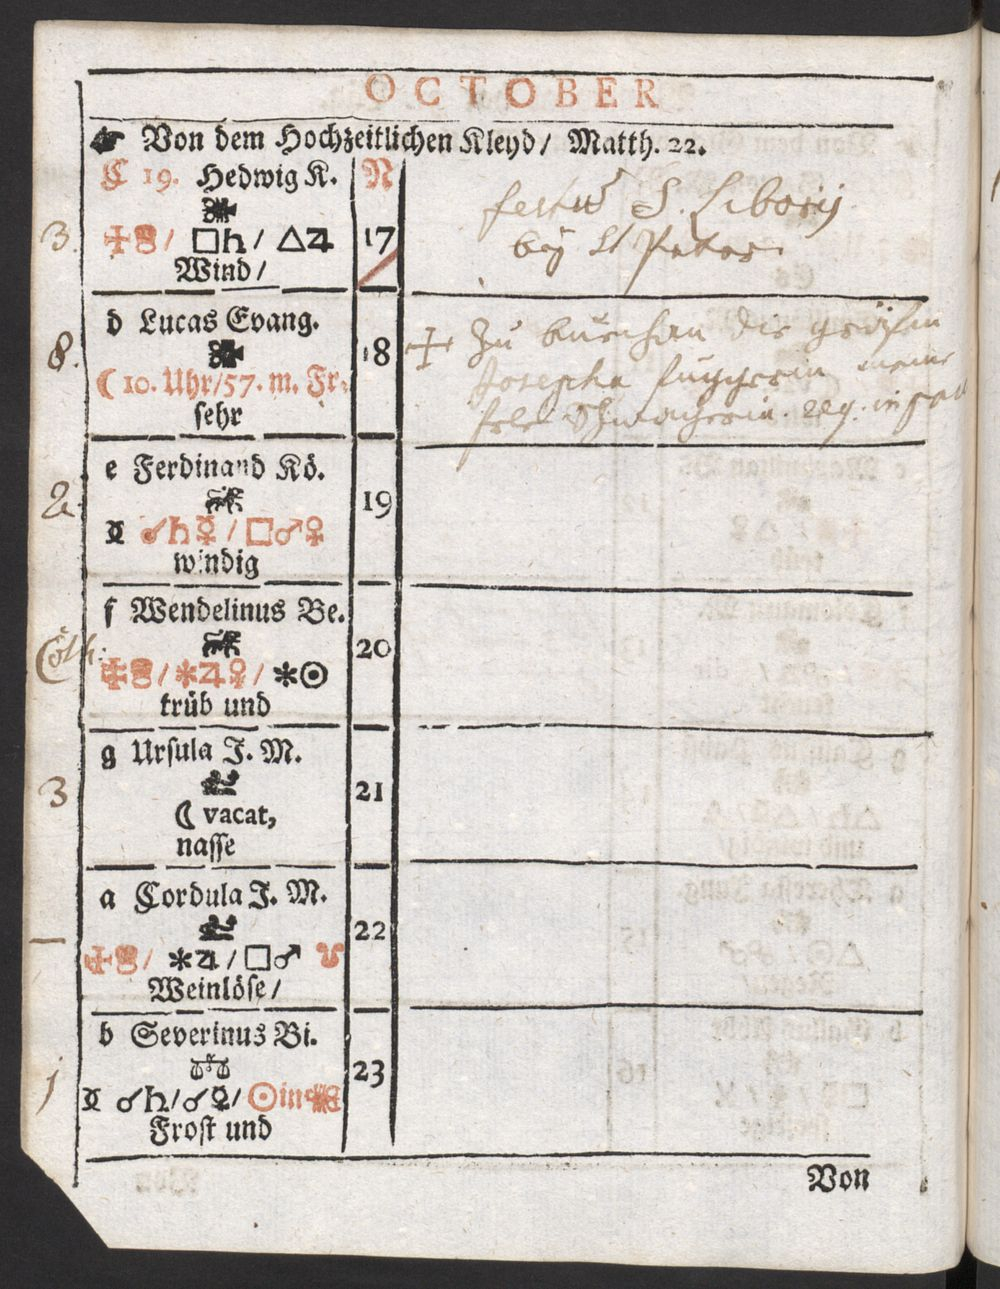 OCTOBER
☛ Von dem Hochzeitlichen Kleyd/ Matth. 22.
C 19. Hedwig K. N
festum S. Liborij
bey St Peter
3.
/ □♄ / △♃ 17
Wind /
d Lucas Evang.
8. 18
☾ 10. Uhr/57. m. Fr.
sehr
Zu
Josepha
e Ferdinand Kö.
2. 19
☿ ☌♄☿ / □♂♀
windig
f Wendelinus Be.
20
/ ✱♃♀ / ✱☉
trüb und
g Ursula J. M.
3 21
☾ vacat,
nasse
a Cordula J. M.
— 22
/ ✱♃ / □♂ ♉
Weinlöse /
b Severinus Bi.
1 23
☌♄/☌☿/ ☉in
Frost und
Von